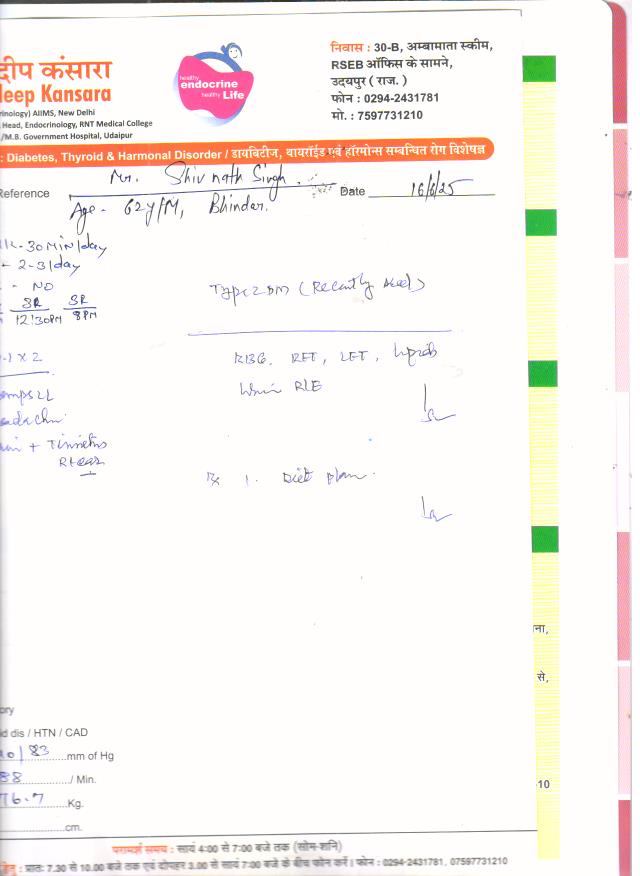 दीप कंसारा
deep Kansara
rinology) AIIMS, New Delhi
Head, Endocrinology, RNT Medical College
/M.B. Government Hospital, Udaipur
healthy
endocrine
healthy Life
निवास : 30-B, अम्बामाता स्कीम,
RSEB ऑफिस के सामने,
उदयपुर ( राज. )
फोन : 0294-2431781
मो. : 7597731210
: Diabetes, Thyroid & Harmonal Disorder / डायबिटीज, थायरॉईड एवं हॉरमोन्स सम्बन्धित रोग विशेषज्ञ
Reference Mr. Shiv nath Singh Date 16/6/25
Age - 62y/M, Bhinder.
- 30 MIN/day
- 2-3/day
- NO
SR SR
12:30PM 8PM
-1 x 2
+ Tinnitus
Rt ear
Type 2 DM (Recently
RBG, RFT, LFT,
RLE
Rx 1. Diet plan.
ना,
से,
10
ory
d dis / HTN / CAD
/ 83 mm of Hg
88 / Min.
76.7 Kg.
cm.
परामर्श समय : सायं 4:00 से 7:00 बजे तक (सोम-शनि)
हेतु : प्रातः 7.30 से 10.00 बजे तक एवं दोपहर 3.00 से सायं 7:00 बजे के बीच फोन करें। फोन : 0294-2431781, 07597731210